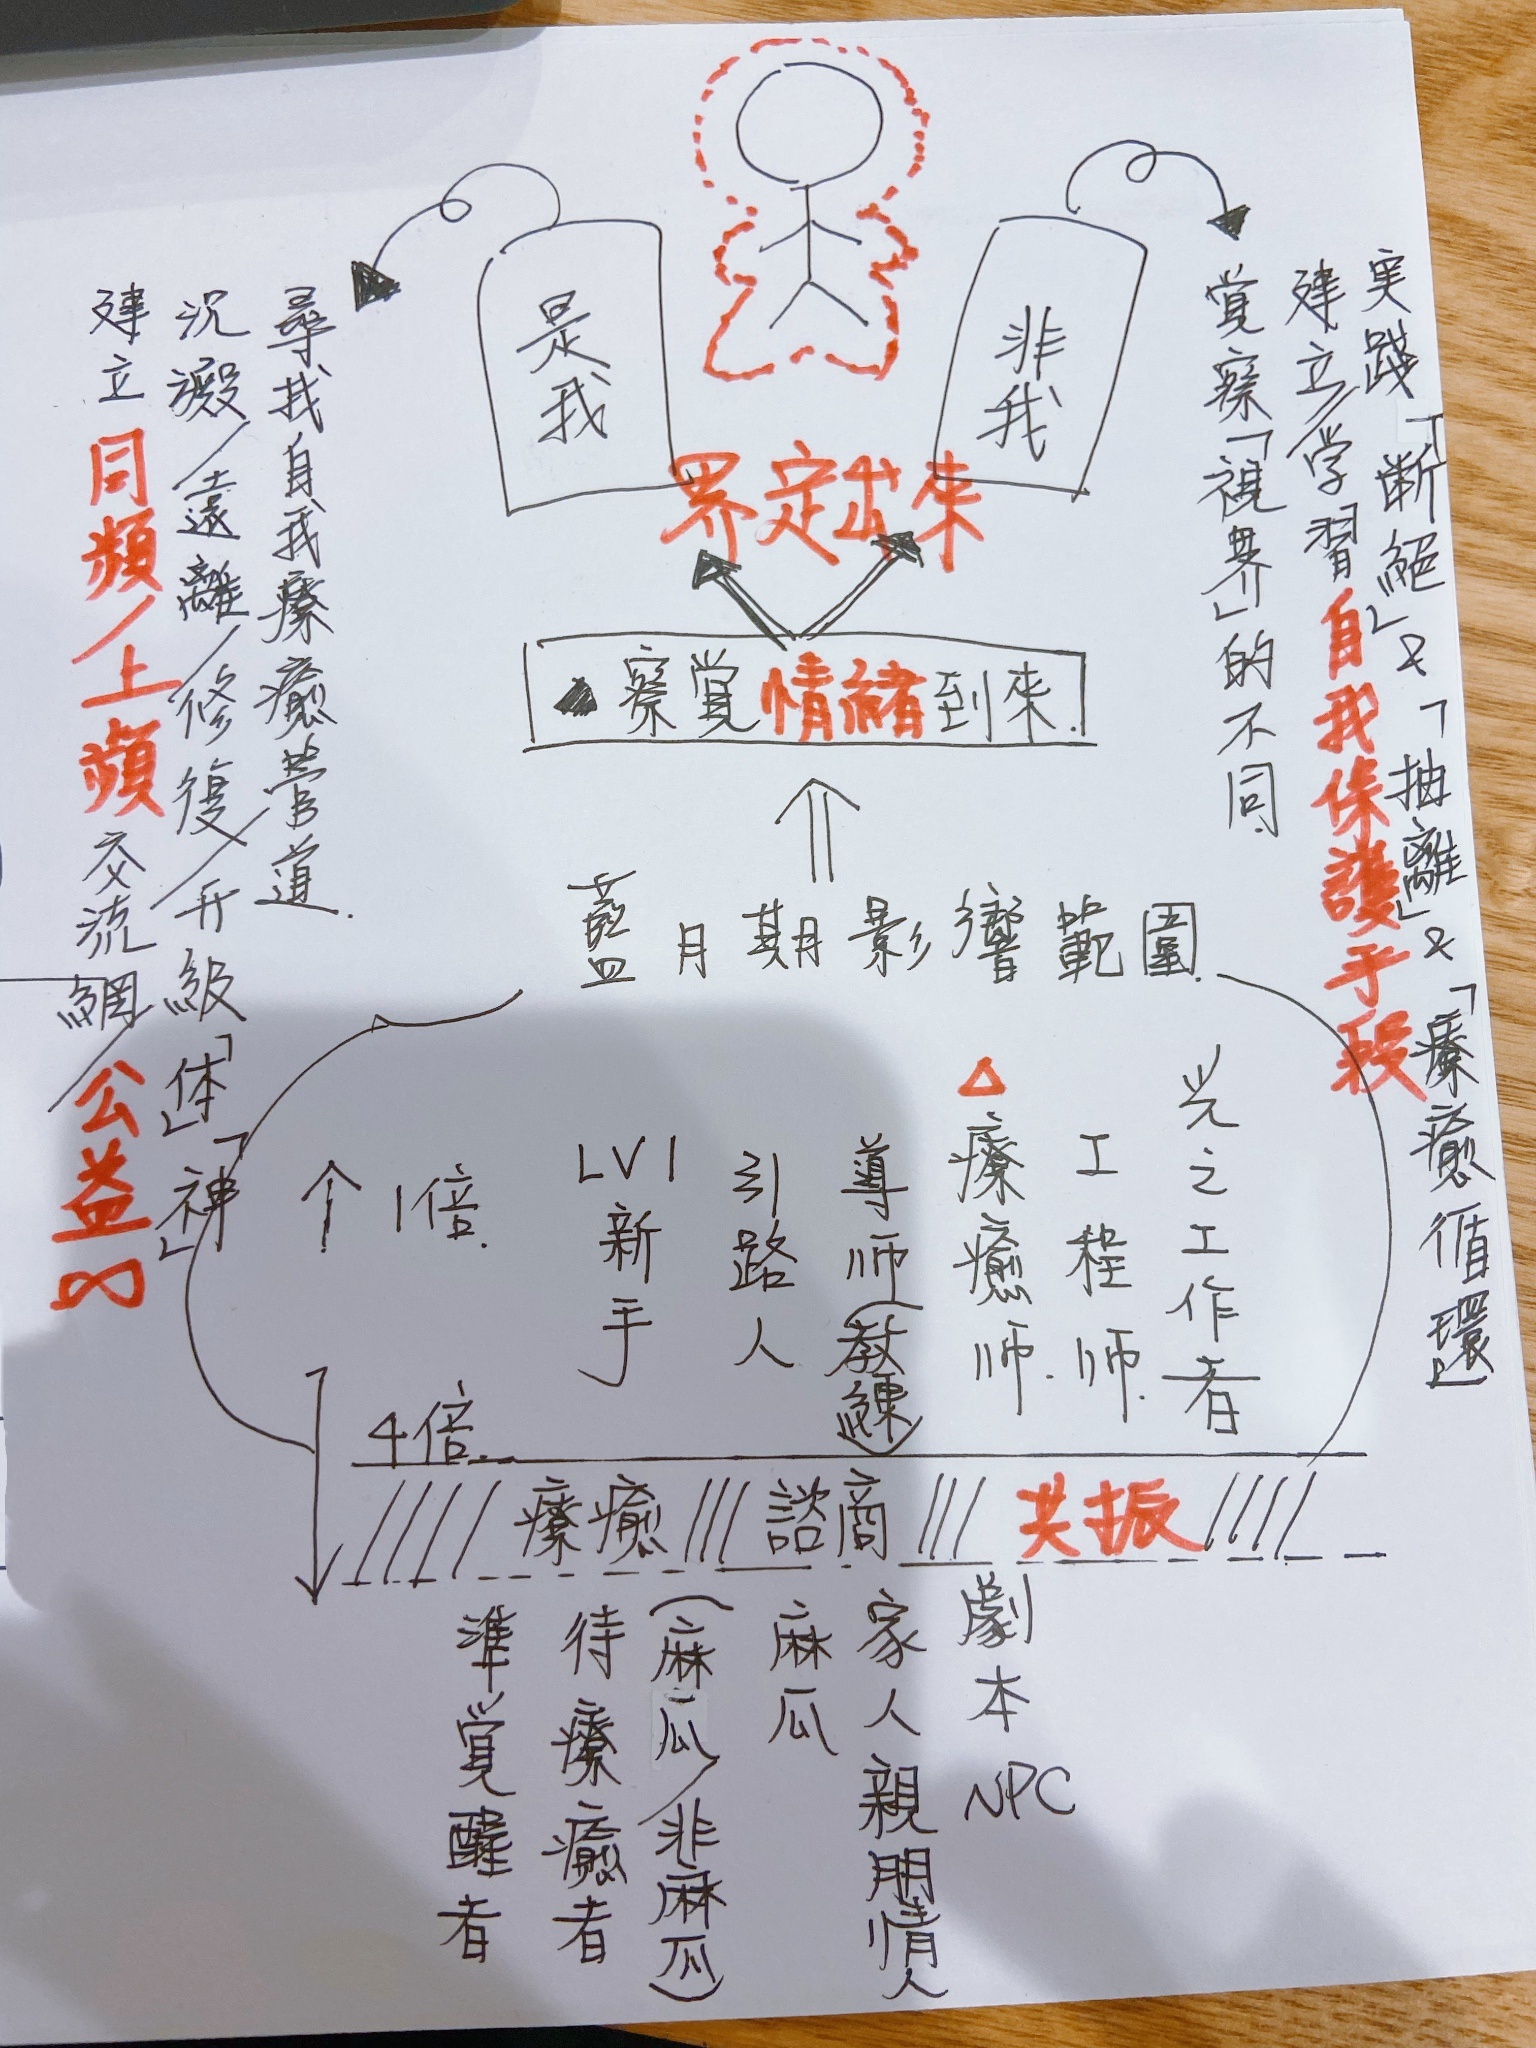 是我
非我
界定出來
察覚情緒到來.
尋找自我療癒管道.
沉澱/遠離/修復/升級「体」「神」
建立同頻/上頻交流網/公益∞
覚察「視界」的不同
建立/学習自我保護手段
実踐「断絕」&「抽離」&「療癒循環」
藍月期影響範圍.
↑1倍.
4倍.
LV1新手
引路人
導师(教練)
△療癒师.
工程师.
光之工作者
療癒///諮商///共振////
準覚醒者
待療癒者
(麻瓜/非麻瓜)
麻瓜
家人親朋情人
劇本NPC